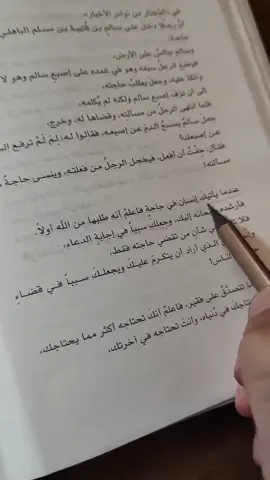 في «المختار من نوادر الأخبار»
رجلاً دخل على سالم بن قتيبة بن مسلم الباهلي
حاجة،
وسالم جالسٌ على الأرض،
فوضع الرجلُ سيفه وهو في غمده على إصبع سالم وهو لا
واتكأ عليه، وجعل يطلب حاجته،
إلى أن نزف إصبع سالم ولكنه لم يُكلمه،
فلما انتهى الرجلُ من مسألته، وقضاها له، وخرج،
جعل سالم يمسحُ الدمَ عن إصبعه، فقالوا له: لِمَ لَمْ ترفع
عن إصبعك؟
فقال: خشيتُ أن أفعل، فيخجل الرجلُ من فعلته، وينسى حاجة
مسألته!
عندما يأتيك إنسان في حاجة فاعلم أنه طلبها من الله أولاً
إليك، وجعلك سبباً في إجابة الدعاء،
شأن من تقضي حاجته فقط،
الذي أراد أن يتكرم عليك ويجعلك سبباً في قضاء
تتصدقُ على فقير، فاعلم أنك تحتاجه أكثر مما يحتاجك،
في دنياه، وأنت تحتاجه في آخرتك،